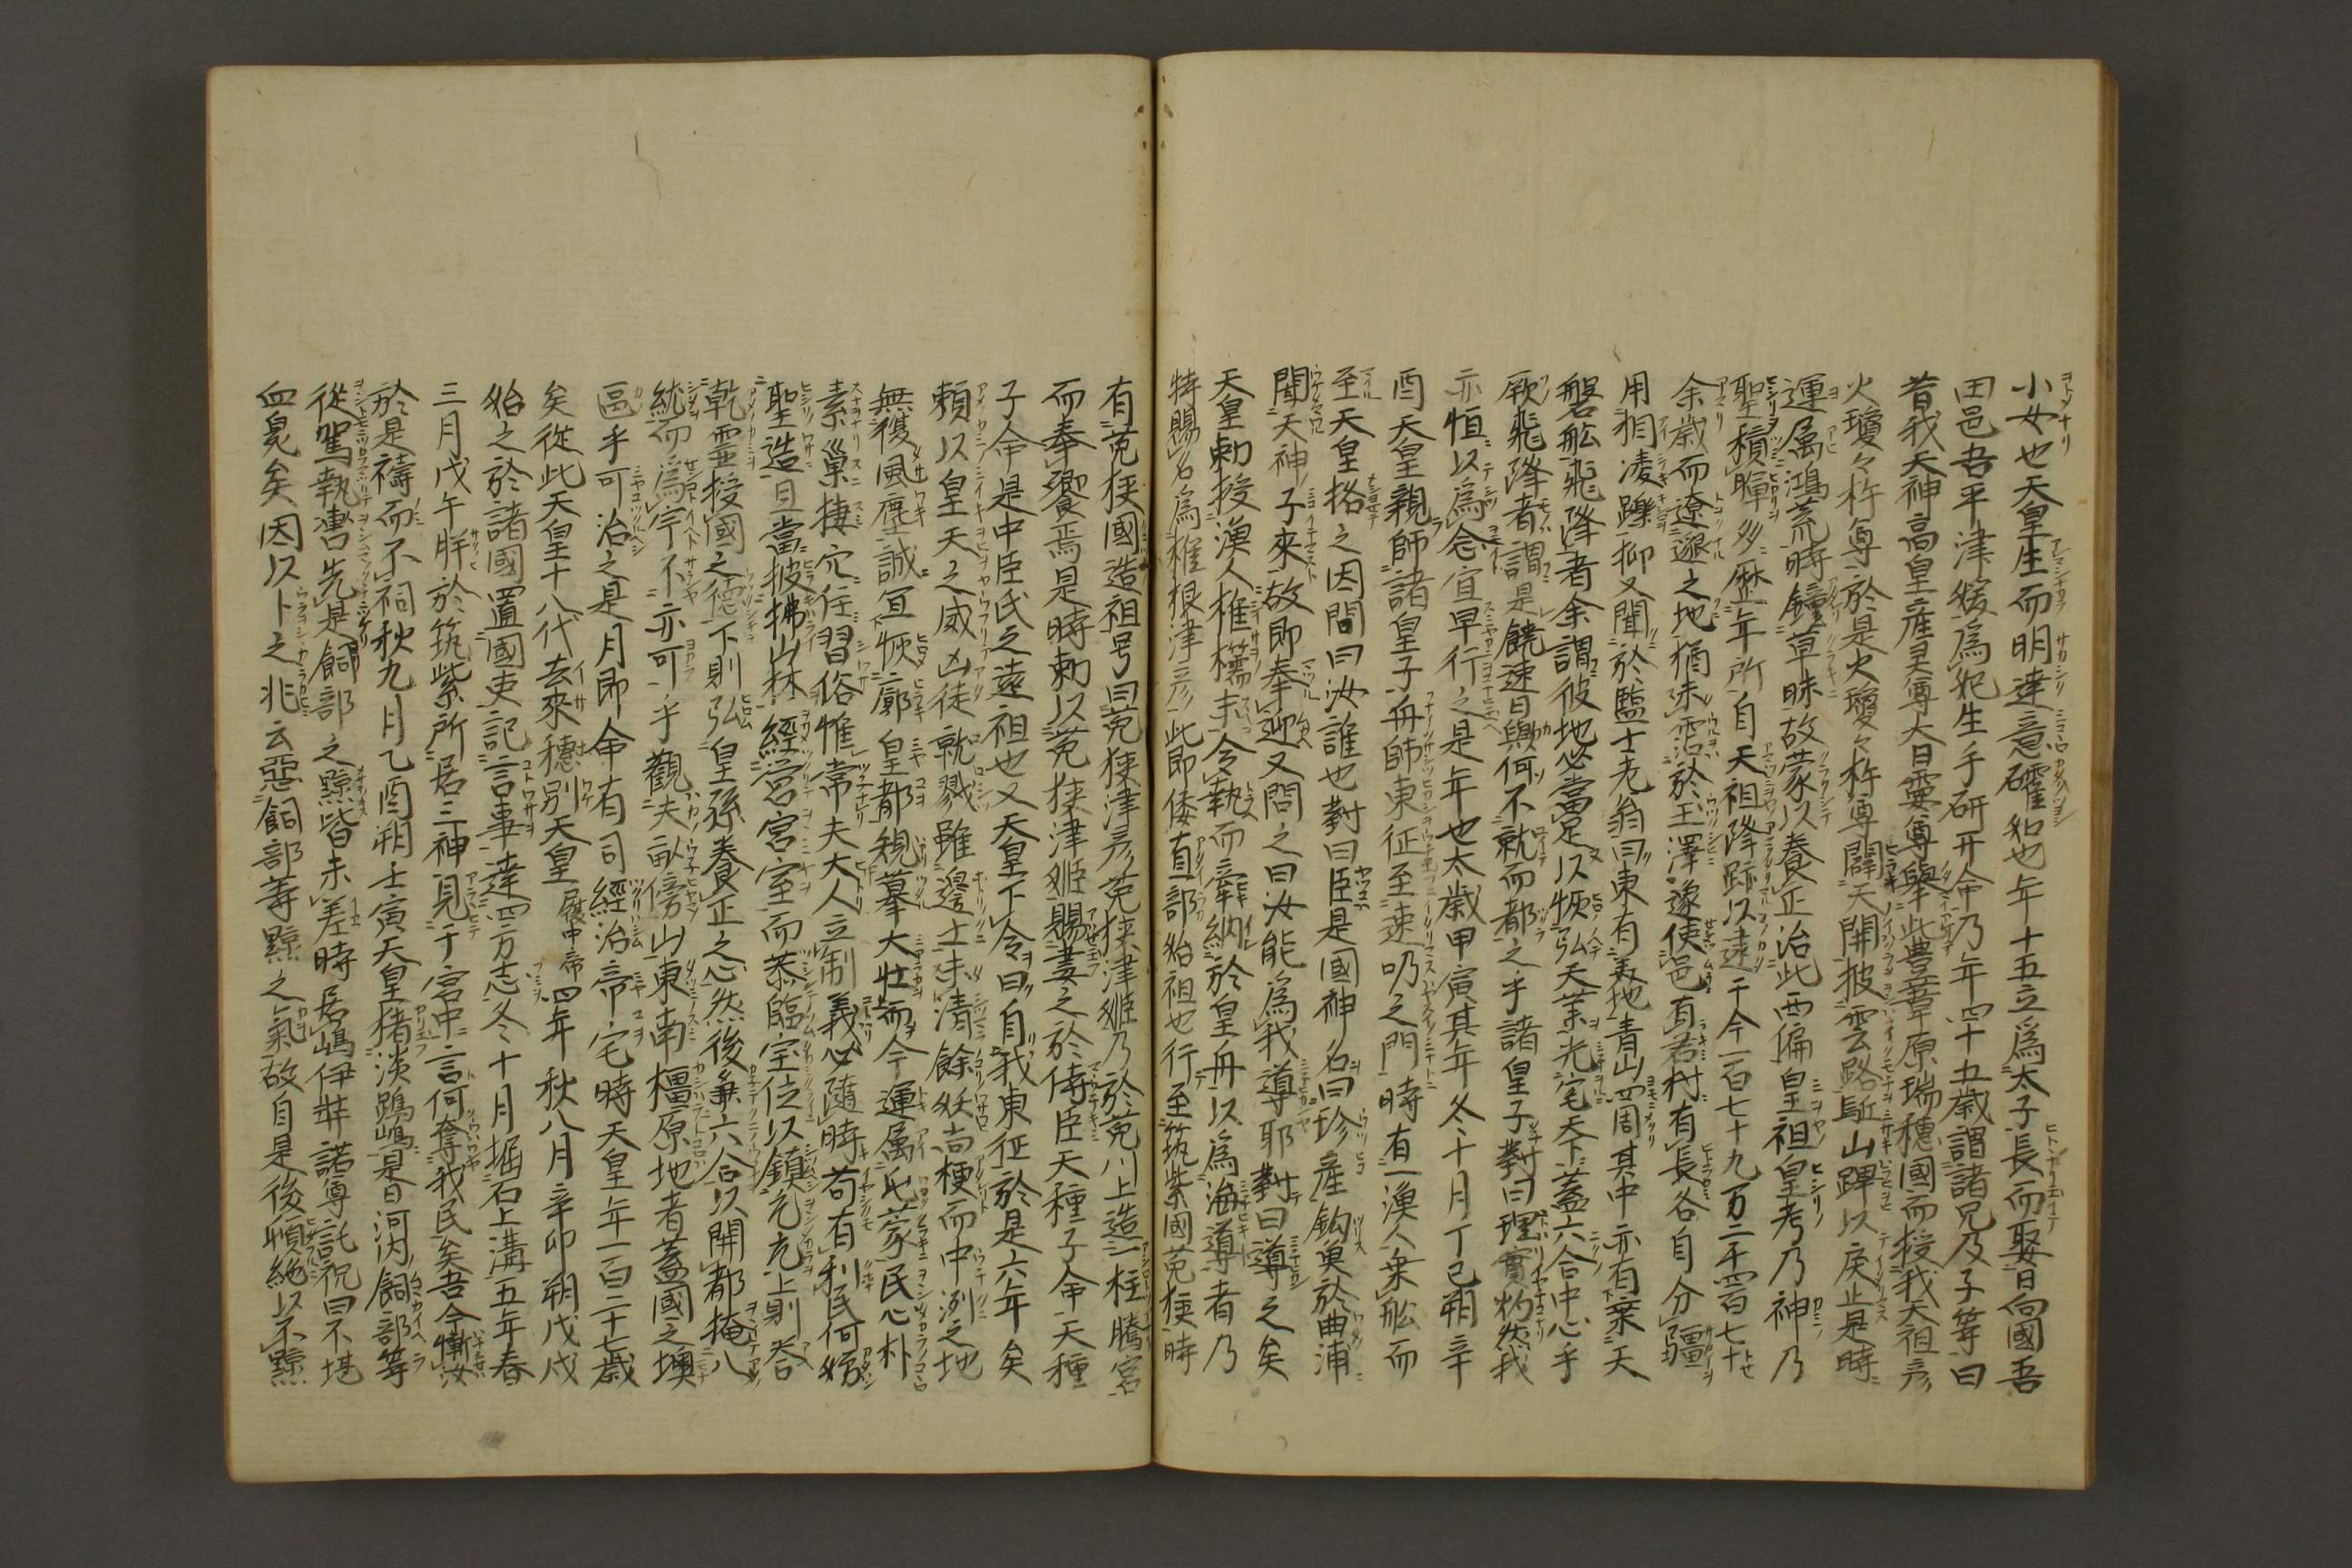 小女也天皇生而明達意礭如也年十五立為太子長而娶日向國吾
田邑吾平津媛為妃生手研耳命乃年四十五歳謂諸兄及子等曰
昔我天神高皇産灵尊大日孁尊舉此豊葦原瑞穂國而授我天祖彦
火瓊々杵尊於是火瓊々杵尊闢天開披雲路駈山蹕以戻止是時
運属鴻荒時鐘草昧故蒙以養正治此西偏皇祖皇考乃神乃
聖積暉多歴年所自天祖降跡以逮于今一百七十九万二千四百七十
余歳而遼邈之地猶未霑於王澤遂使邑有君村有長各自分疆
用相凌躒抑又聞於塩土老翁曰東有美地青山四周其中亦有乗天
磐舩飛降者余謂彼地必當足以恢弘天業光宅天下蓋六合中心乎
厥飛降者謂是饒速日歟何不就而都之乎諸皇子對曰理實灼然我
亦恒以為念宜早行之是年也太歳甲寅其年冬十月丁巳朔辛
酉天皇親師諸皇子舟師東征至速吸之門時有一漁人乗舩而
至天皇格之因問曰汝誰也對曰臣是國神名曰珍産釣奠於曲浦
聞天神子來故即奉迎又問之曰汝能為我導耶對曰導之矣
天皇勅授漁人椎檽末令執而牽納於皇舟以為海導者乃
特賜名為椎根津彦此即倭直部始祖也行至筑紫國菟狹時
有菟狹國造祖号曰菟狹津彦菟狹津姫乃於菟川上造一柱騰宮
而奉饗焉是時勅以菟狹津姫賜妻之於侍臣天種子命天種
子命是中臣氏之遠祖也又天皇下令曰自我東征於是六年矣
頼以皇天之威凶徒就戮雖邊土未清餘妖尚梗而中洌之地
無復風塵誠宜恢廓皇都規摹大壮而今運属屯蒙民心朴
素巣棲穴住習俗惟常夫大人立制義必隨時苟有利民何妨
聖造且當披拂山林經営宮室而恭臨宝位以鎮元元上則荅
乾霊授國之徳下則弘皇孫養正之心然後兼六合以開都掩八
紘而為宇不亦可乎觀夫畝傍山東南橿原地者蓋國之墺
區乎可治之是月即命有司經治帝宅時天皇年一百二十七歳
矣從此天皇十八代去來穂別天皇履中帝四年秋八月辛卯朔戊戌
始之於諸國置國吏記言事達四方志冬十月堀石上溝五年春
三月戊午朔於筑紫所居三神見于宮中言何奪我民矣吾今慚汝
於是祷而不祠秋九月乙酉朔壬寅天皇猪淡路嶋是日河内飼部等
從駕執轡先是飼部之黥皆未差時居嶋伊弉諾尊託祝曰不堪
血臭矣因以卜之兆云悪飼部等黥之氣故自是後頓絶以不黥